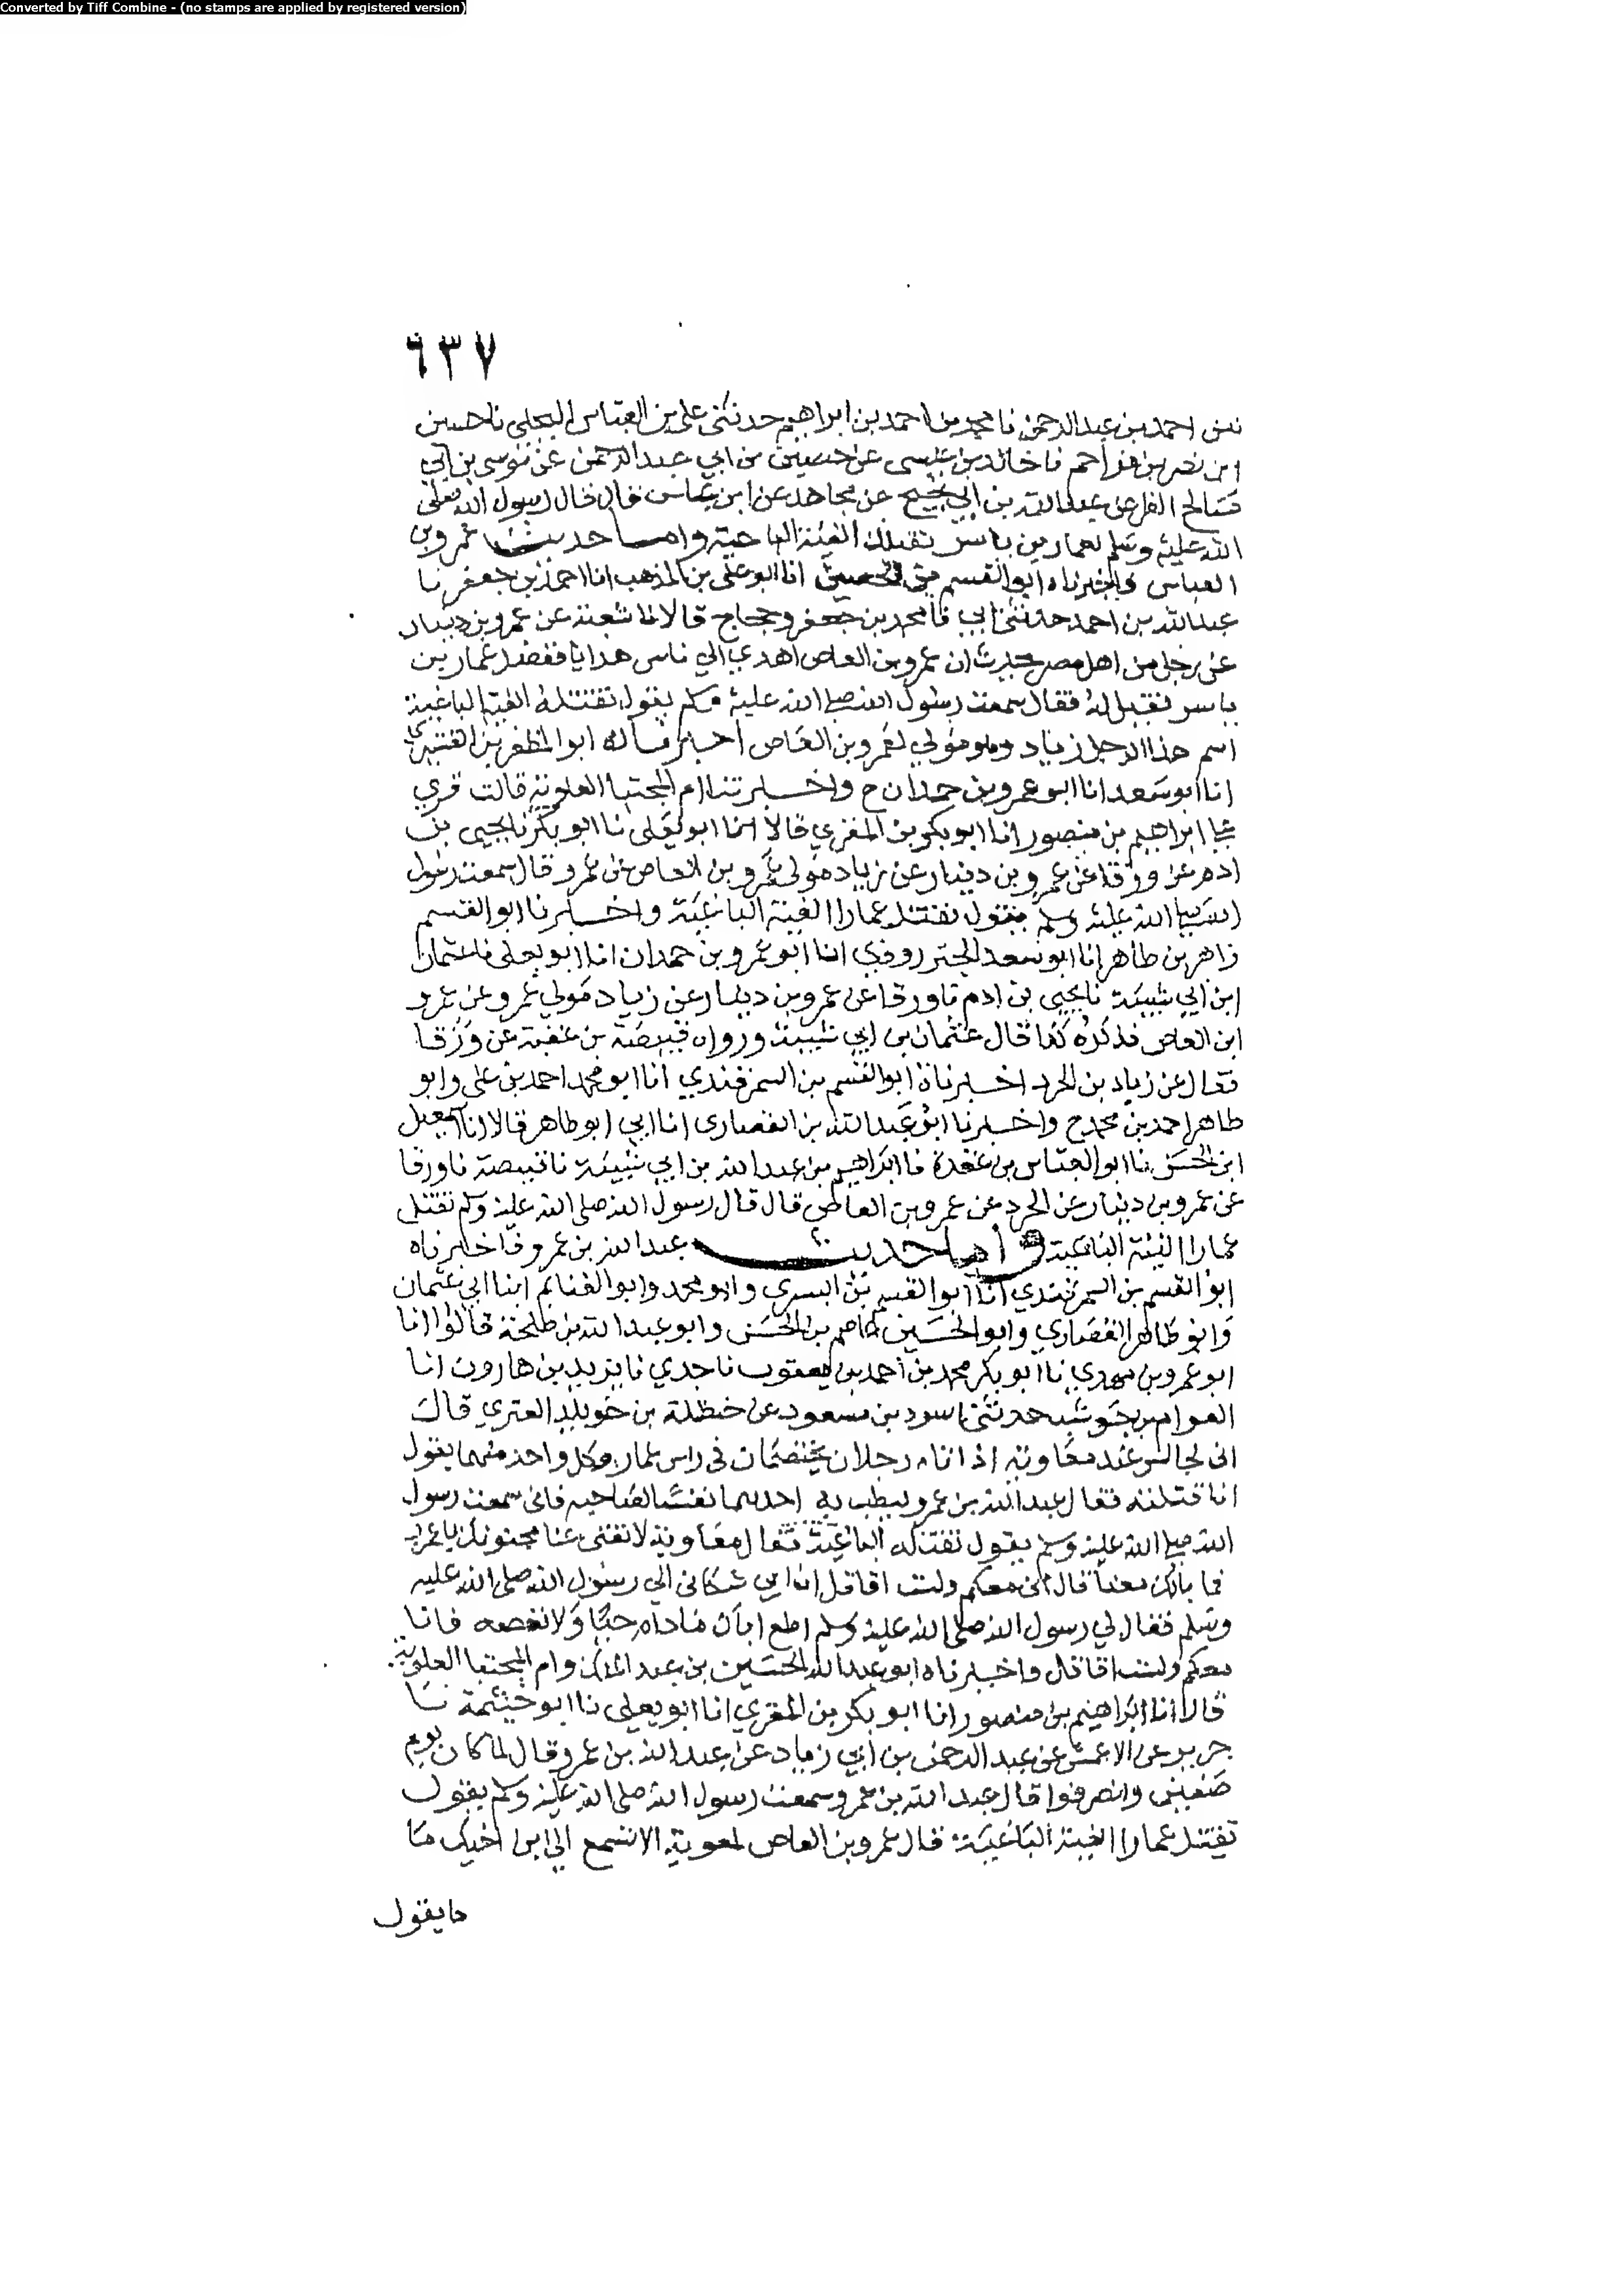 Converted by Tiff Combine - (no stamps are applied by registered version)
٦٣٧
احمد بن عبد الرحمن نا محمد بن احمد بن ابراهيم حدثني علي بن العباس البجلي نا حسين
ابن نصر بن مزاحم نا خالد بن عيسى عن حصين بن ابي عبد الرحمن عن موسى بن ابي
عن عبد الله بن ابي نجيح عن مجاهد عن ابن عباس قال قال رسول الله صلى
الله عليه وسلم لعمار بن ياسر تقتلك الفئة الباغية واما حديث عمرو بن
العباس فاخبرناه ابو القسم بن الحصين انا ابو علي بن المذهب انا احمد بن جعفر نا
عبد الله بن احمد حدثني ابي نا محمد بن جعفر وحجاج قالا نا شعبة عن عمرو بن دينار
عن رجل من اهل مصر يحدث ان عمرو بن العاص اهدي الي ناس هدايا ففضل عمار بن
ياسر فقيل له فقال سمعت رسول الله صلى الله عليه وسلم يقول تقتله الفئة الباغية
اسم هذا الرجل زياد وهو مولي لعمرو بن العاص اخبرناه ابو المظفر بن القشيري
انا ابو سعد انا ابو عمرو بن حمدان ح واخبرتنا ام المجتبا العلوية قالت قري
علي ابراهيم بن منصور انا ابو بكر بن المقري قالا انا ابو يعلى نا ابو بكر نا يحيى بن
ادم عن ورقا عن عمرو بن دينار عن زياد مولى عمرو بن العاص عن عمرو قال سمعت رسول
الله صلى الله عليه وسلم يقول تقتل عمارا الفية الباغية واخبرنا ابو القسم
زاهر بن طاهر انا ابو سعد الجنزروذي انا ابو عمرو بن حمدان انا ابو يعلى نا عثمان
ابن ابي شيبة نا يحيى بن ادم نا ورقا عن عمرو بن دينار عن زياد مولي عمرو عن عمرو
ابن العاص فذكره كذا قال عثمان بن ابي شيبة ورواه قبيصة بن عقبة عن ورقا
فقال عن زياد بن الحرد اخبرناه ابو القسم بن السمرقندي انا ابو محمد احمد بن علي وابو
طاهر احمد بن محمد ح واخبرنا ابو عبد الله بن القصاري انا ابي ابو طاهر قالا نا اسمعيل
ابن الحسن نا ابو العباس بن عقدة نا ابراهيم بن عبد الله بن ابي شيبة نا قبيصة نا ورقا
عن عمرو بن دينار عن الحرد عن عمرو بن العاص قال قال رسول الله صلى الله عليه وسلم تقتل
عمارا الفية الباغية واما حديث عبد الله بن عمرو فاخبرناه
ابو القسم بن السمرقندي انا ابو القسم بن البسري وابو محمد وابو الغنايم ابنا ابي عثمان
وابو طاهر القصاري وابو الحسين عاصم بن الحسن وابو عبد الله بن طلحة قالوا انا
ابو عمرو بن مهدي نا ابو بكر محمد بن احمد بن يعقوب نا جدي نا يزيد بن هارون انا
العوام بن حوشب حدثني اسود بن مسعود عن حنظلة بن خويلد العنزي قال
اني لجالس عند معاوية اذ اتاه رجلان يختصمان في راس عمار وكل واحد منهما يقول
انا قتلته فقال عبد الله بن عمرو ليطب به احدكما نفسا لصاحبه فاني سمعت رسول
الله صلى الله عليه وسلم يقول تقتله الباغية فقال معاوية لا تغني عنا مجنونك يا عمرو
فما بالك معنا قال اني معكم ولست اقاتل ان ابي شكاني الي رسول الله صلى الله عليه
وسلم فقال لي رسول الله صلى الله عليه وسلم اطع اباك ما دام حيا ولا تعصه فانا
معكم ولست اقاتل واخبرناه ابو عبد الله الحسين بن عبد الملك وام المجتبا العلوية
قالا انا ابراهيم بن منصور انا ابو بكر بن المقري انا ابو يعلى نا ابو خيثمة نا
جرير عن الاعمش عن عبد الرحمن بن ابي زياد عن عبد الله بن عمرو قال لما كان يوم
صفين وانصرفوا قال عبد الله بن عمرو سمعت رسول الله صلى الله عليه وسلم يقول
تقتل عمارا الفية الباغية قال عمرو بن العاص لمعوية الا تسمع الي ابن اخيك ما
ما يقول